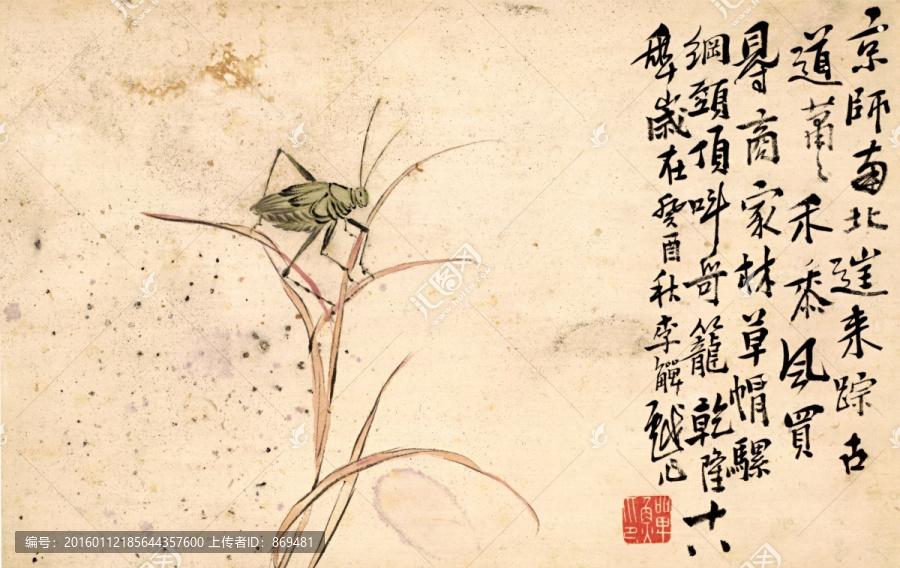 京師南北来踪古
道蕭々禾黍風買
㝵商家林草帽騾
綱頭頂叫哥籠乾隆十八
年歲在癸酉秋李鱓
编号：20160112185644357600 上传者ID：869481